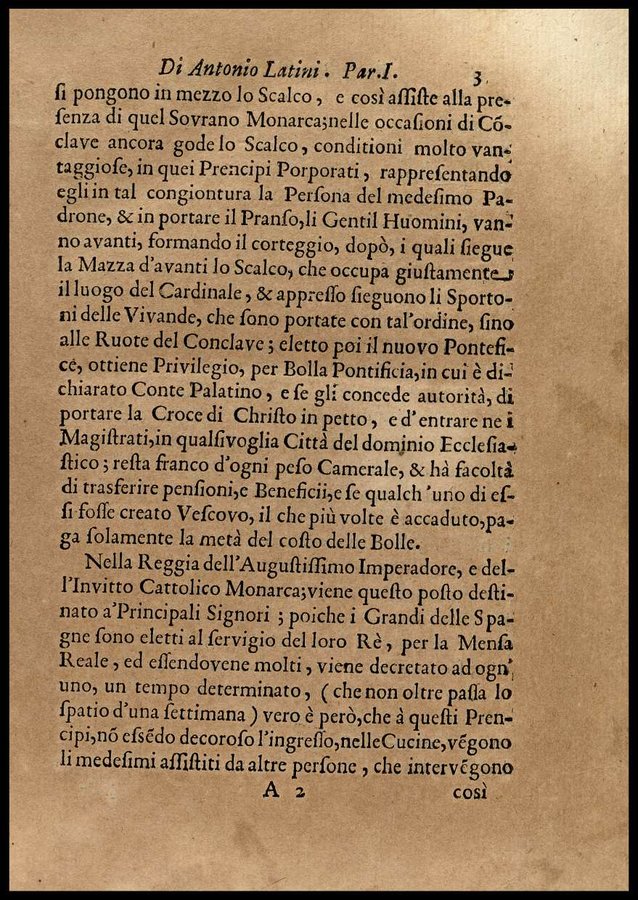 Di Antonio Latini. Par.I. 3
ſi pongono in mezzo lo Scalco, e così aſſiſte alla pre-
ſenza di quel Sovrano Monarca;nelle occaſioni di Cõ-
clave ancora gode lo Scalco, conditioni molto van-
taggioſe, in quei Prencipi Porporati, rappreſentando
egli in tal congiontura la Perſona del medeſimo Pa-
drone, & in portare il Pranſo,li Gentil Huomini, van-
no avanti, formando il corteggio, dopò, i quali ſiegue
la Mazza d'avanti lo Scalco, che occupa giuſtamente
il luogo del Cardinale, & appreſſo ſieguono li Sporto-
ni delle Vivande, che ſono portate con tal'ordine, ſino
alle Ruote del Conclave; eletto poi il nuovo Pontefi-
ce, ottiene Privilegio, per Bolla Pontificia,in cui è di-
chiarato Conte Palatino, e ſe gli concede autorità, di
portare la Croce di Chriſto in petto, e d'entrare ne i
Magiſtrati,in qualſivoglia Città del dominio Eccleſia-
ſtico; reſta franco d'ogni peſo Camerale, & hà facoltà
di trasferire penſioni,e Beneficii,e ſe qualch'uno di eſ-
ſi foſſe creato Veſcovo, il che più volte è accaduto,pa-
ga ſolamente la metà del coſto delle Bolle.
Nella Reggia dell'Auguſtiſſimo Imperadore, e del-
l'Invitto Cattolico Monarca;viene queſto poſto deſti-
nato a'Principali Signori ; poiche i Grandi delle Spa-
gne ſono eletti al ſervigio del loro Rè, per la Menſa
Reale, ed eſſendovene molti, viene decretato ad ogn'
uno, un tempo determinato, (che non oltre paſſa lo
ſpatio d'una ſettimana) vero è però,che à queſti Pren-
cipi,nõ eſsẽdo decoroſo l'ingreſſo,nelle Cucine,vẽgono
li medeſimi aſſiſtiti da altre perſone, che intervẽgono
A 2 così